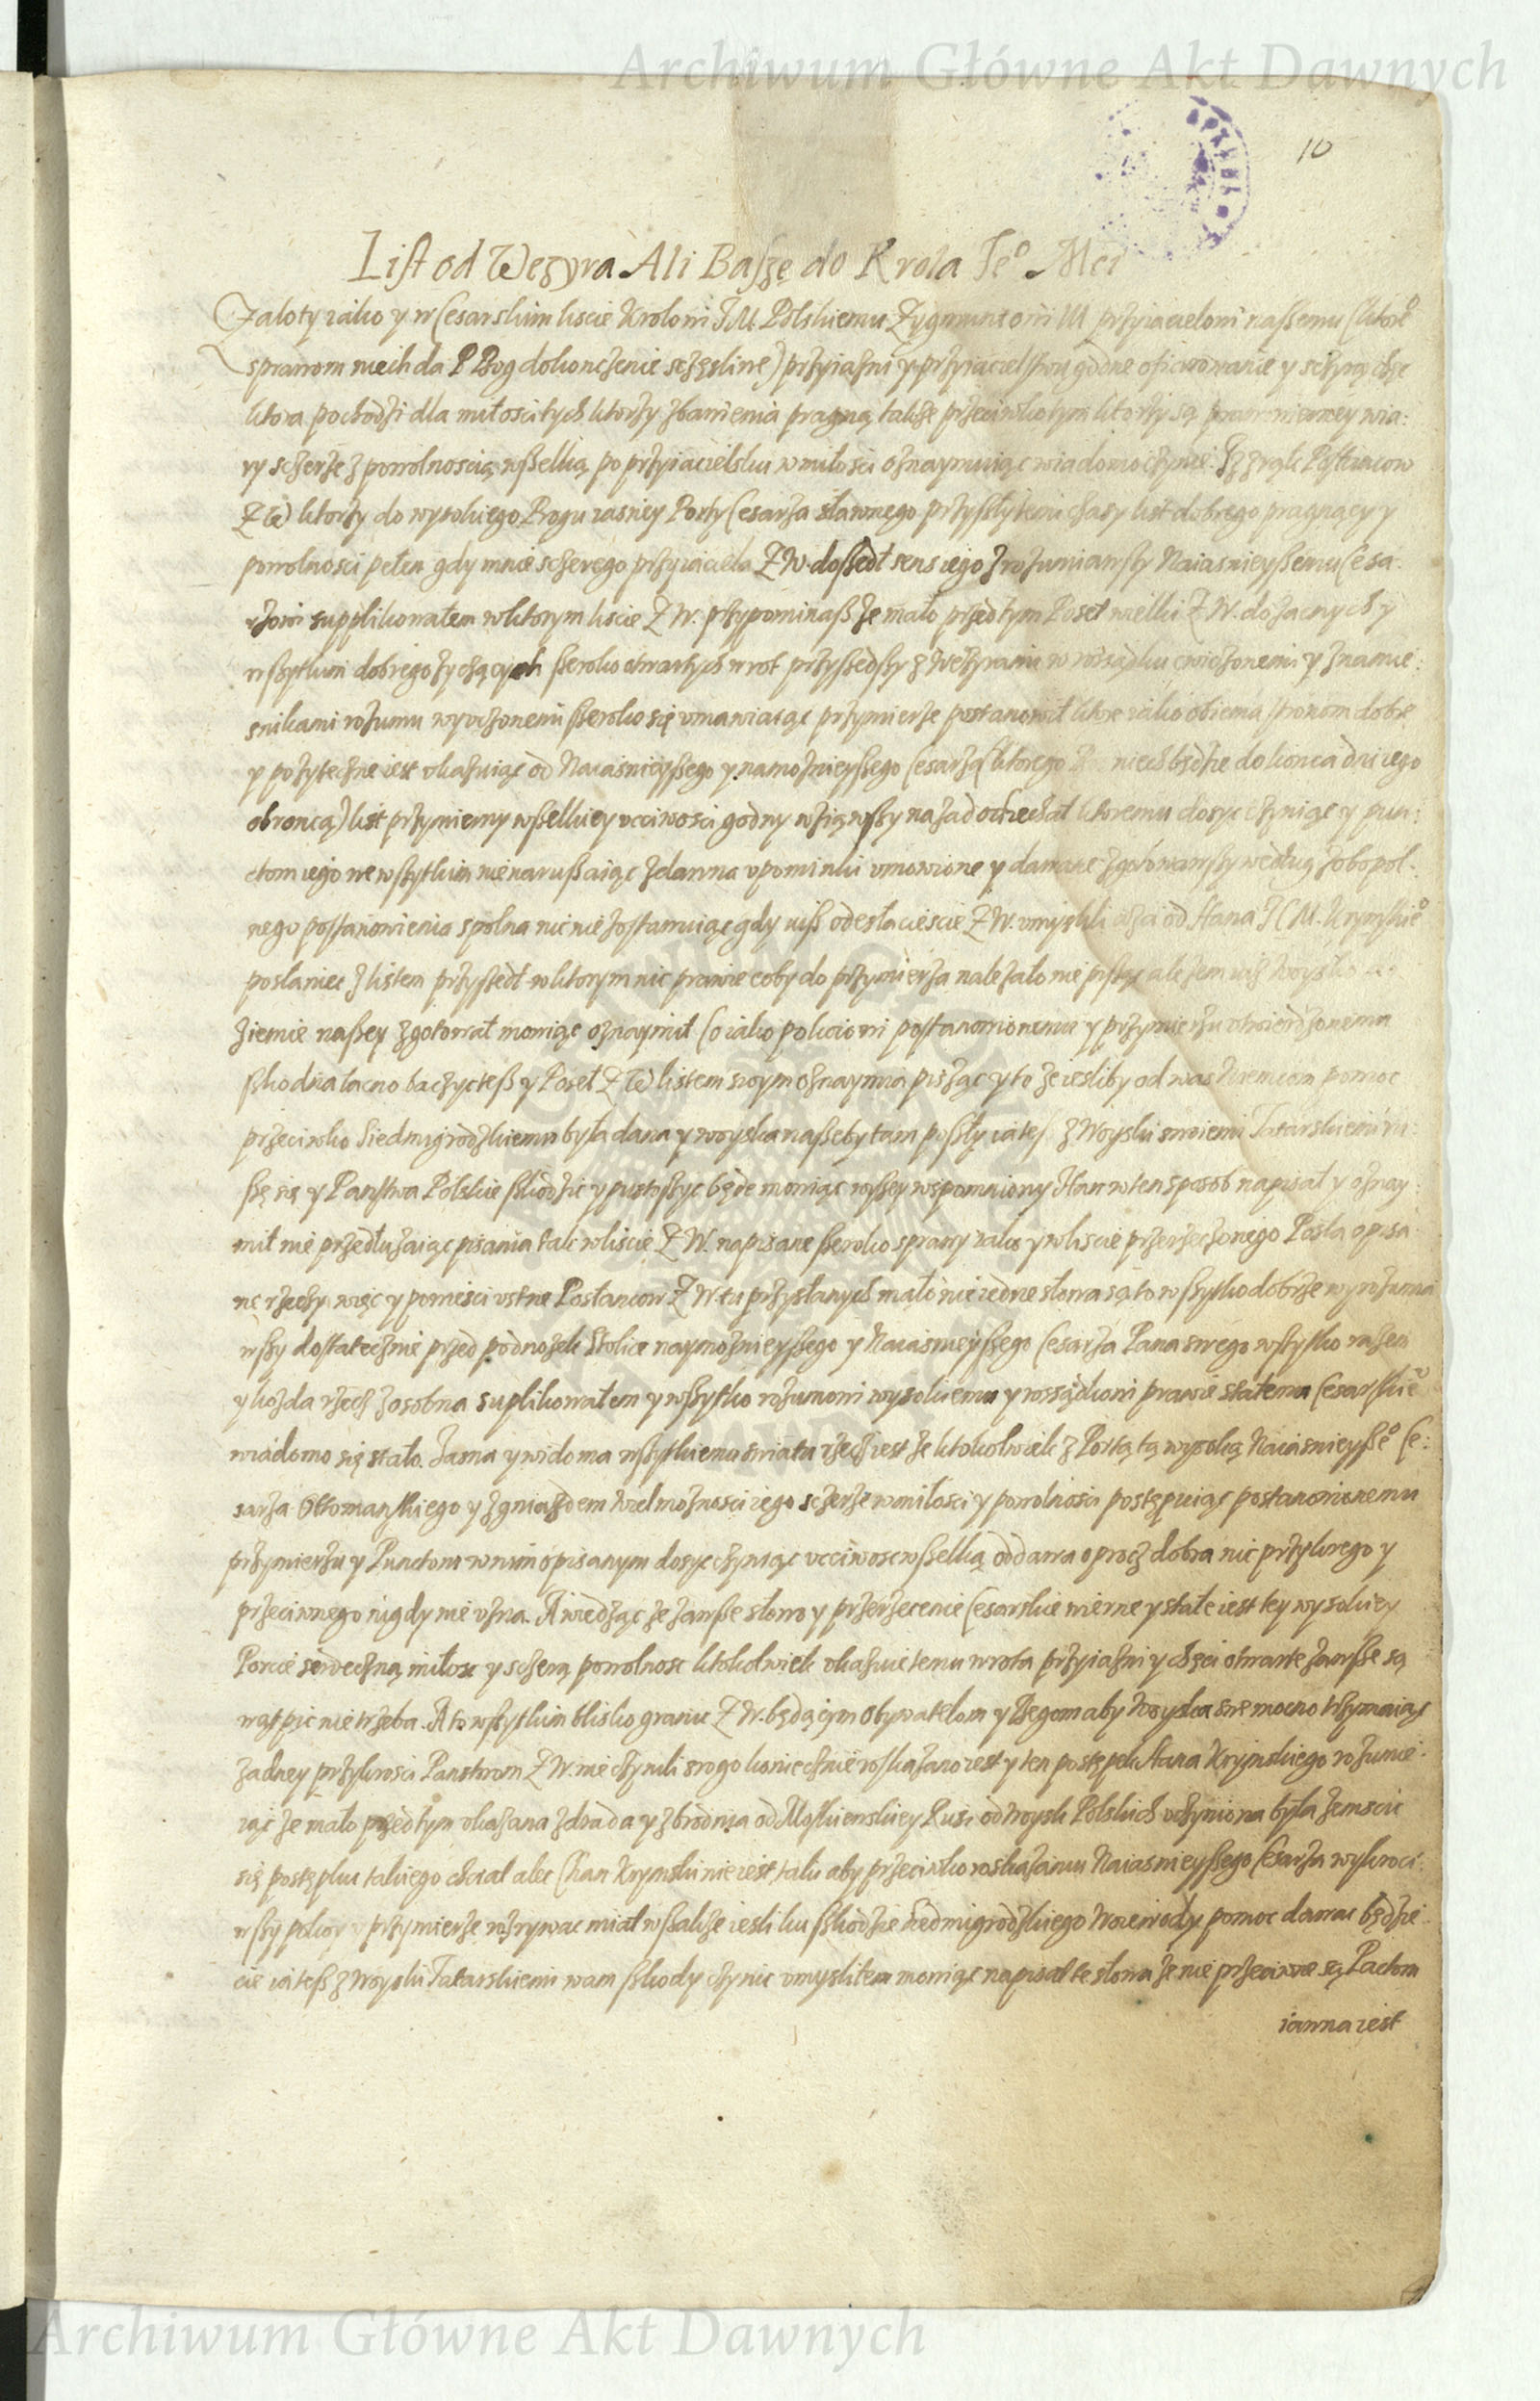 Archiwum Główne Akt Dawnych
10
List od Wezyra Ali Baszę do Krola Jeº Mci
Zaloty iako y w Cesarskim liscie Krolowi J M. Polskiemu Zygmuntowi III przyiacielowi naszemu (ktoreº
sprawom niech da P Bog dokonczenie sczęsliwe) przyiazni y przyiacielstwu godne ofiarowanie y sczyrą chęc
ktora pochodzi dla miłosci tych ktorzy zbawienia pragną także przeciwko tym ktorzy są praw niewney wia:
ry sczerze z powolnoscią wszelką po przyiacielsku w miłosci oznaymuiąc wiadomo czynię. Iż z rąk Posłancow
Z W ktorzy do wysokiego Progu iasney Porty Cesarza sławnego przyszłytemi czasy list dobrego pragnący y
powolnosci pełen gdy mnie sczerego przyiaciela Z W. doszedł sens iego zrozumiawszy Naiasnieyszemu Cesa:
rzowi supplikowałem w ktorym liscie Z W. przypominasz że mało przedtym Poseł wielki Z W. do zacnych y
wszytkim dobrego życzących szeroko otwartych wrot przyszedszy z Wezyrami w rozsądku cwiczonemi y znamie:
snikami rozumu wyuczonemi szeroko się umawiaiąc przymierze postanowił ktore iako obiema stronom dobre
y pożyteczne iest okazuiąc od Naiasnieyszego y namożnieyszego Cesarza (ktorego niech będzie do konca dni iego
obroncą) list przymierny wszelkiey uczciwosci godny wziąwszy nazad odiechał ktoremu dosyc czyniąc y pun:
ctom iego we wszytkim nienaruszaiąc zdawna upominki umowione y dawane zgotowawszy według zobopol:
nego postanowienia spolna nic nie zostawuiąc gdy iusz odesłaciescie Z W. umyslili od Hana J C M. Krymskieº
posłaniec z listem przyszedł w ktorym nic prawie coby do przymierza należało nie pisząc ale żem iusz Woysko
ziemie naszey zgotował mowiąc oznaymił Co iako pokoiowi postanowionemu y przymierzu utwierdzonemu
szkodna łacno baczyc tesz y Poseł Z W listem swym oznaymia pisząc y to że iesliby od was Niemcom pomoc
przeciwko Siedmigrodzkiemu była dana y woyska naszeby tam poszły ia tesz z Woyski swoiemi Tatarskiemi ru:
szę się y Panstwa Polskie szkodzic y pustoszyc będę mowiąc wyszey wspomniony Han w ten sposob napisał y oznay:
mił nie przedłużaiąc pisania tak w liscie Z W. napisane szeroko sprawy iako y w liscie przerzeczonego Posła opisa
ne rzeczy więc y powiesci ustne Posłancow Z W. tu przysłanych mało nie iedne słowa są to wszytko dobrze wyrozumia
wszy dostatecznie przed podnożek Stolice naymożnieyszego y Naiasnieyszego Cesarza Pana swego wszytko razem
y kożda rzecz zosobna suplikowałem y wszytko rozumowi wysokiemu y rossądkowi prawie stałemu Cesarskieº
wiadomo się stało. Jasna y widoma wszytkiemu swiatu rzecz iest że ktokolwiek z Portą tą wysoką Naiasnieyszeº Ce:
sarza Ottomanskiego y z gniazdem wielmożnosci iego sczerze w miłosci y powolnosci postępuiąc postanowionemu
przymierzu y Punctom w nim opisanym dosyc czyniąc uczciwosc wszelką oddawa oprocz dobra nic przykrego y
przeciwnego nigdy nie uzna. A wiedząc że zawsze słowo y przerzeczenie Cesarskie wierne y stałe iest tey wysokiey
Porcie serdeczną miłosc y sczerą powolnosc ktokolwiek okazuie temu wrota przyiazni y chęci otwarte zawsze są
wątpic nie trzeba. A to wszytkim blisko granic Z W. będącym Obywatelom y Begom aby Woyska swe mocno trzymaiąc
żadney przykrosci Panstwom Z W. nie czynili srogo koniecznie roskazano iest y ten postępek Hana Krymskiego rozumie:
iąc że mało przedtym okazana zdrada y zbrodnia od Moskiewskiey Rusi od Woysk Polskich uczyniona była zemscic
się postępku takiego chciał alec Chan Krymski nie iest taki aby przeciwko roskazaniu Naiasnieyszego Cesarza wykroci:
wszy pokoy y przymierze rozrywac miał wszakże iesli ku szkodzie Siedmigrodzkiego Woiewody pomoc dawac będzie:
cie ia tesz z Woyski Tatarskiemi wam szkody czynic umysliłem mowiąc napisał te słowa że nie przeciwne są Pactom
iawna iest
Archiwum Główne Akt Dawnych